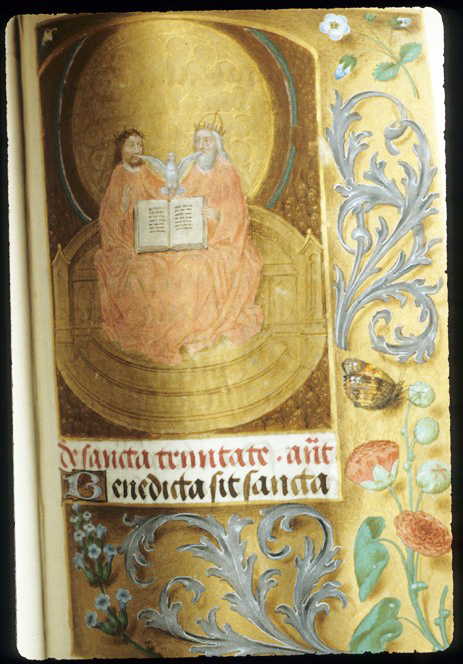 De sancta trinitate . añt
Benedicta sit sancta